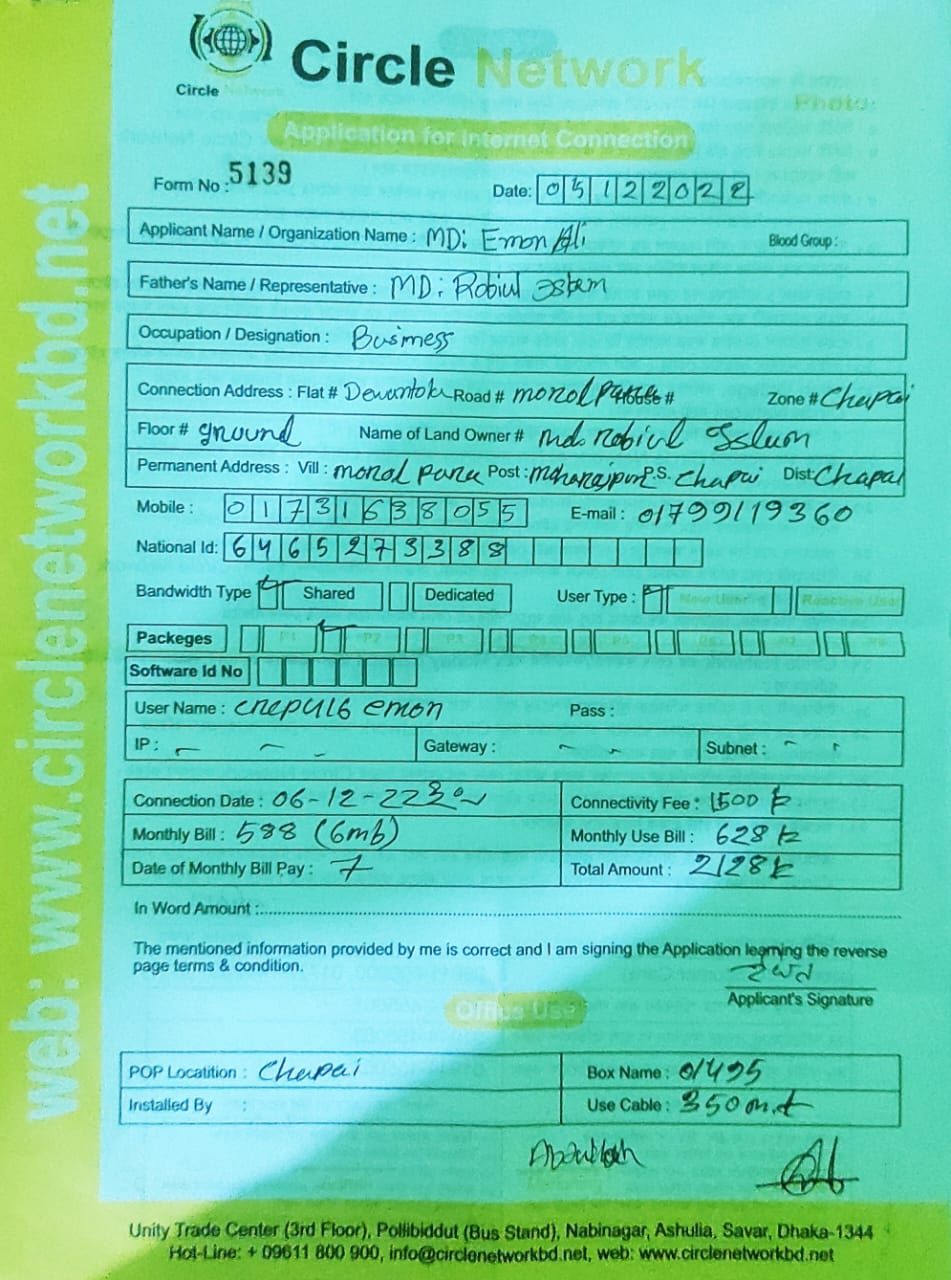 Circle Network
Circle Network
Photo:
Application for Internet Connection
Form No : 5139
Date: 05122022
Applicant Name / Organization Name : MD: Emon Ali Blood Group :
Father's Name / Representative : MD: Robiul Islam
Occupation / Designation : Business
Connection Address : Flat # Road # monol para House # Zone # Chapai
Floor # ground Name of Land Owner # md. robiul Islam
Permanent Address : Vill : monol para Post : P.S. Chapai Dist: Chapai
Mobile : 01731638055 E-mail : 01799119360
National Id: 6465273388
Bandwidth Type Shared Dedicated User Type : New User Reactive User
Packeges P1 P2 P3
Software Id No
User Name : emon Pass :
IP : Gateway : Subnet :
Connection Date : 06-12-22 Connectivity Fee : 1500
Monthly Bill : 588 (6mb) Monthly Use Bill : 628
Date of Monthly Bill Pay : 7 Total Amount : 2128
In Word Amount :
The mentioned information provided by me is correct and I am signing the Application learning the reverse
page terms & condition.
Applicant's Signature
Office Use
POP Locatition : Chapai Box Name : 01495
Installed By : Use Cable : 350
Abdullah
Unity Trade Center (3rd Floor), Pollibiddut (Bus Stand), Nabinagar, Ashulia, Savar, Dhaka-1344
Hot-Line: + 09611 800 900, info@circlenetworkbd.net, web: www.circlenetworkbd.net
web: www.circlenetworkbd.net